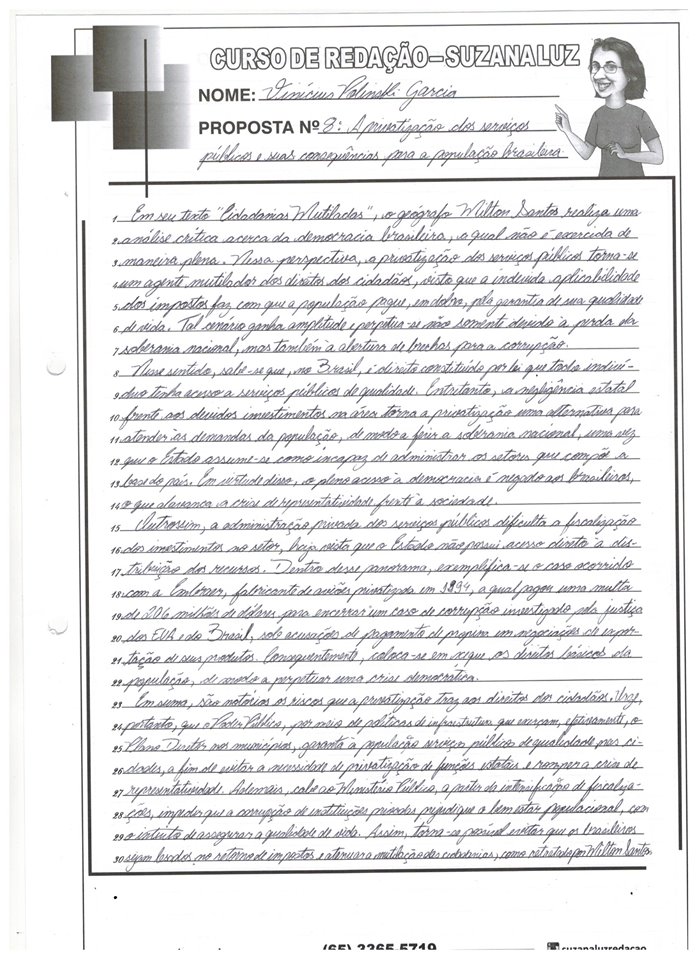 CURSO DE REDAÇÃO–SUZANA LUZ
NOME: Vinícius Polinski Garcia
PROPOSTA Nº 8: A privatização dos serviços
públicos e suas consequências para a população brasileira.
1 Em seu texto "Cidadanias Mutiladas", o geógrafo Milton Santos realiza uma
2 análise crítica acerca da democracia brasileira, a qual não é exercida de
3 maneira plena. Nessa perspectiva, a privatização dos serviços públicos torna-se
4 um agente mutilador dos direitos dos cidadãos, visto que a indevida aplicabilidade
5 dos impostos faz com que a população pague, em dobro, pela garantia de sua qualidade
6 de vida. Tal cenário ganha amplitude e perpetua-se não somente devido à perda da
7 soberania nacional, mas também à abertura de brechas para a corrupção.
8 Nesse sentido, sabe-se que, no Brasil, é direito constituído por lei que todo indiví-
9 duo tenha acesso a serviços públicos de qualidade. Entretanto, a negligência estatal
10 frente aos devidos investimentos na área torna a privatização uma alternativa para
11 atender às demandas da população, de modo a ferir a soberania nacional, uma vez
12 que o Estado assume-se como incapaz de administrar os setores que compõe a
13 base do país. Em virtude disso, o pleno acesso à democracia é negado aos brasileiros,
14 o que alavanca a crise de representatividade frente à sociedade.
15 Outrossim, a administração privada dos serviços públicos dificulta a fiscalização
16 dos investimentos no setor, haja vista que o Estado não possui acesso direto à dis-
17 tribuição dos recursos. Dentro desse panorama, exemplifica-se o caso ocorrido
18 com a Embraer, fabricante de aviões privatizada em 1994, a qual pagou uma multa
19 de 206 milhões de dólares para encerrar um caso de corrupção investigado pela justiça
20 dos EUA e do Brasil, sob acusações de pagamento de propina em negociações de expor-
21 tação de seus produtos. Consequentemente, coloca-se em xeque os direitos básicos da
22 população, de modo a perpetuar uma crise democrática.
23 Em suma, são notórios os riscos que a privatização traz aos direitos dos cidadãos. Urge,
24 portanto, que o Poder Público, por meio de políticas de infraestrutura que exerçam, efetivamente, o
25 Plano Diretor nos municípios, garanta à população serviços públicos de qualidade nas ci-
26 dades, a fim de evitar a necessidade de privatização de funções estatais e romper a crise de
27 representatividade. Ademais, cabe ao Ministério Público, a partir da intensificação de fiscaliza-
28 ções, impedir que a corrupção de instituições privadas prejudique o bem estar populacional, com
29 o intuito de assegurar a qualidade de vida. Assim, torna-se possível evitar que os brasileiros
30 sejam lesados no retorno de impostos e atenuar a mutilação das cidadanias, como retratado por Milton Santos.
(65) 3365-5719
suzanaluzredacao